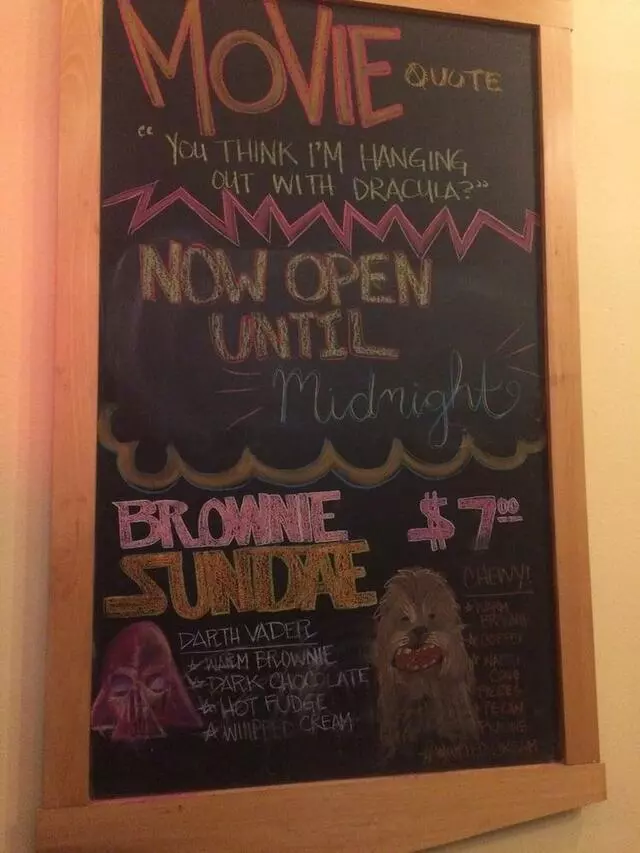 MOVIE QUOTE
"YOU THINK I'M HANGING
OUT WITH DRACULA?"
NOW OPEN
UNTIL
Midnight
BROWNIE $7.00
SUNDAE
DARTH VADER
WARM BROWNIE
DARK CHOCOLATE
HOT FUDGE
WHIPPED CREAM
CHEWY!
WARM
BROWNIE
PECAN
WHIPPED CREAM